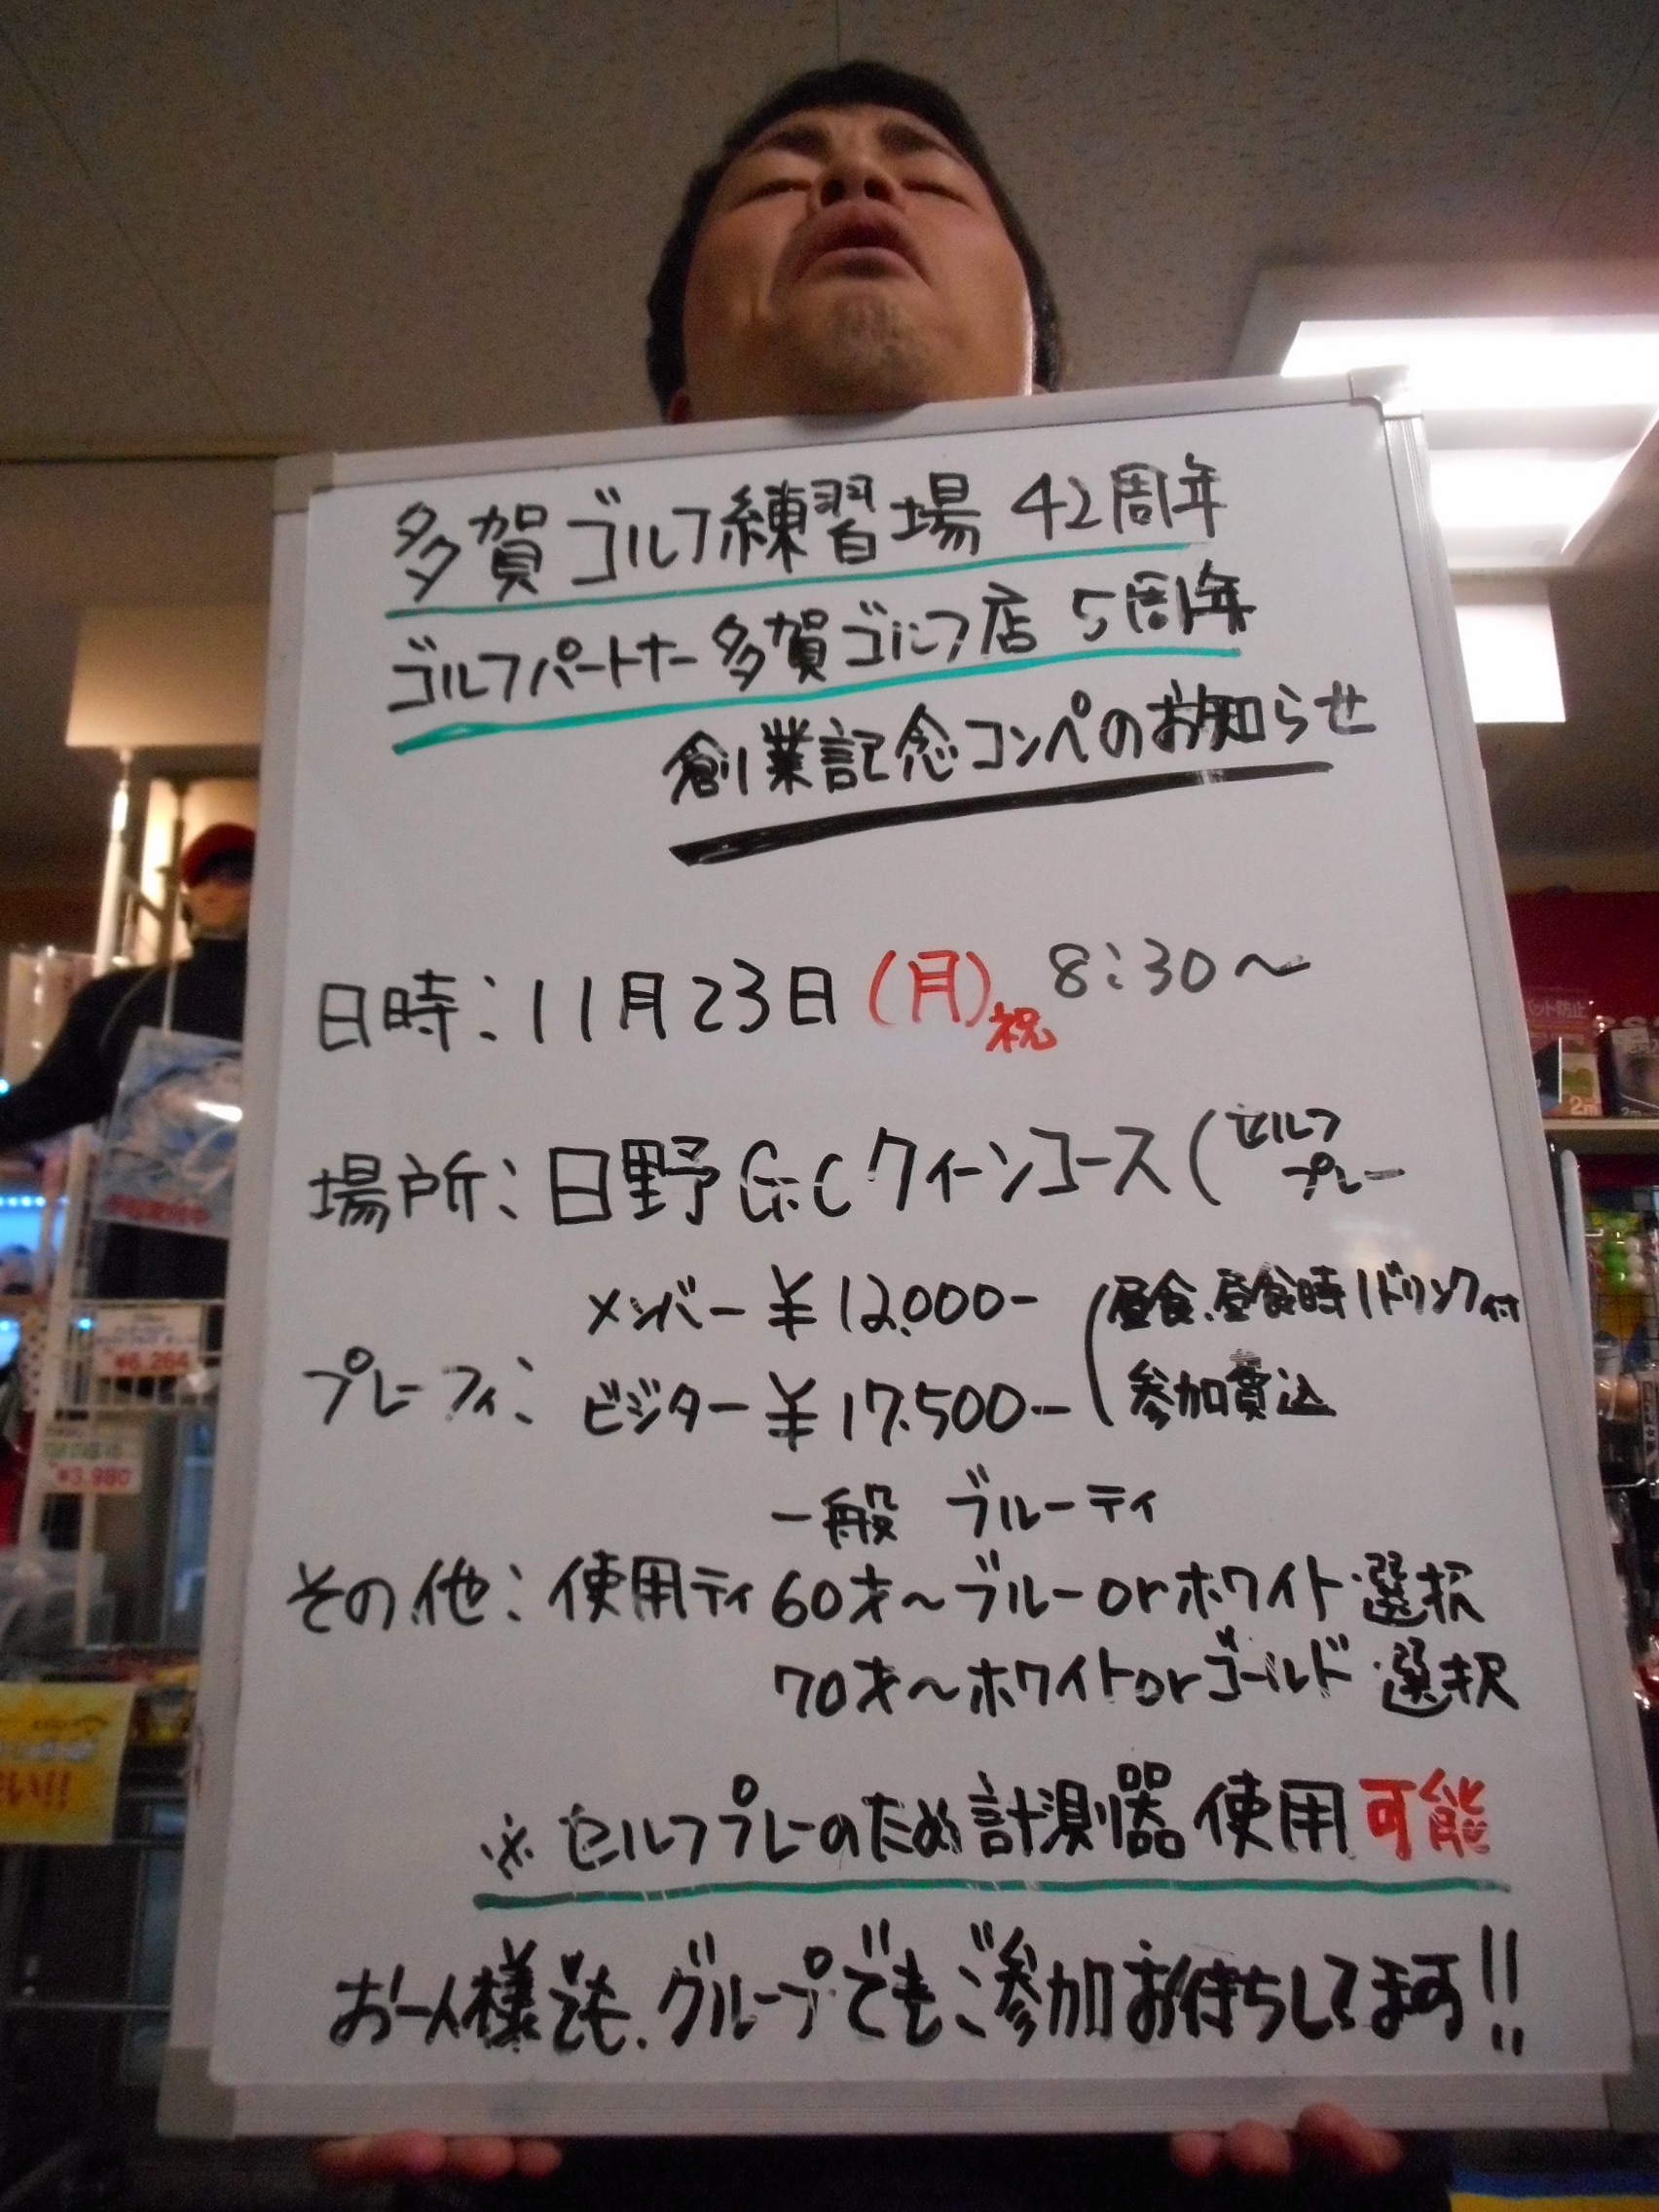 多賀ゴルフ練習場 42周年
ゴルフパートナー多賀ゴルフ店 5周年
創業記念コンペのお知らせ
日時:11月23日(月)祝 8:30~
場所:日野G.Cクィーンコース(セルフプレー
メンバー ¥12,000- (昼食、昼食時1ドリンク付
プレーフィ:
ビジター ¥17,500- 参加費込
一般 ブルーティ
その他:使用ティ 60才~ブルーorホワイト選択
70才~ホワイトorゴールド選択
※セルフプレーのため計測器使用可能
お一人様でも、グループでもご参加お待ちしてます!!
¥6,264
¥3,980
ット防止
2m
2m